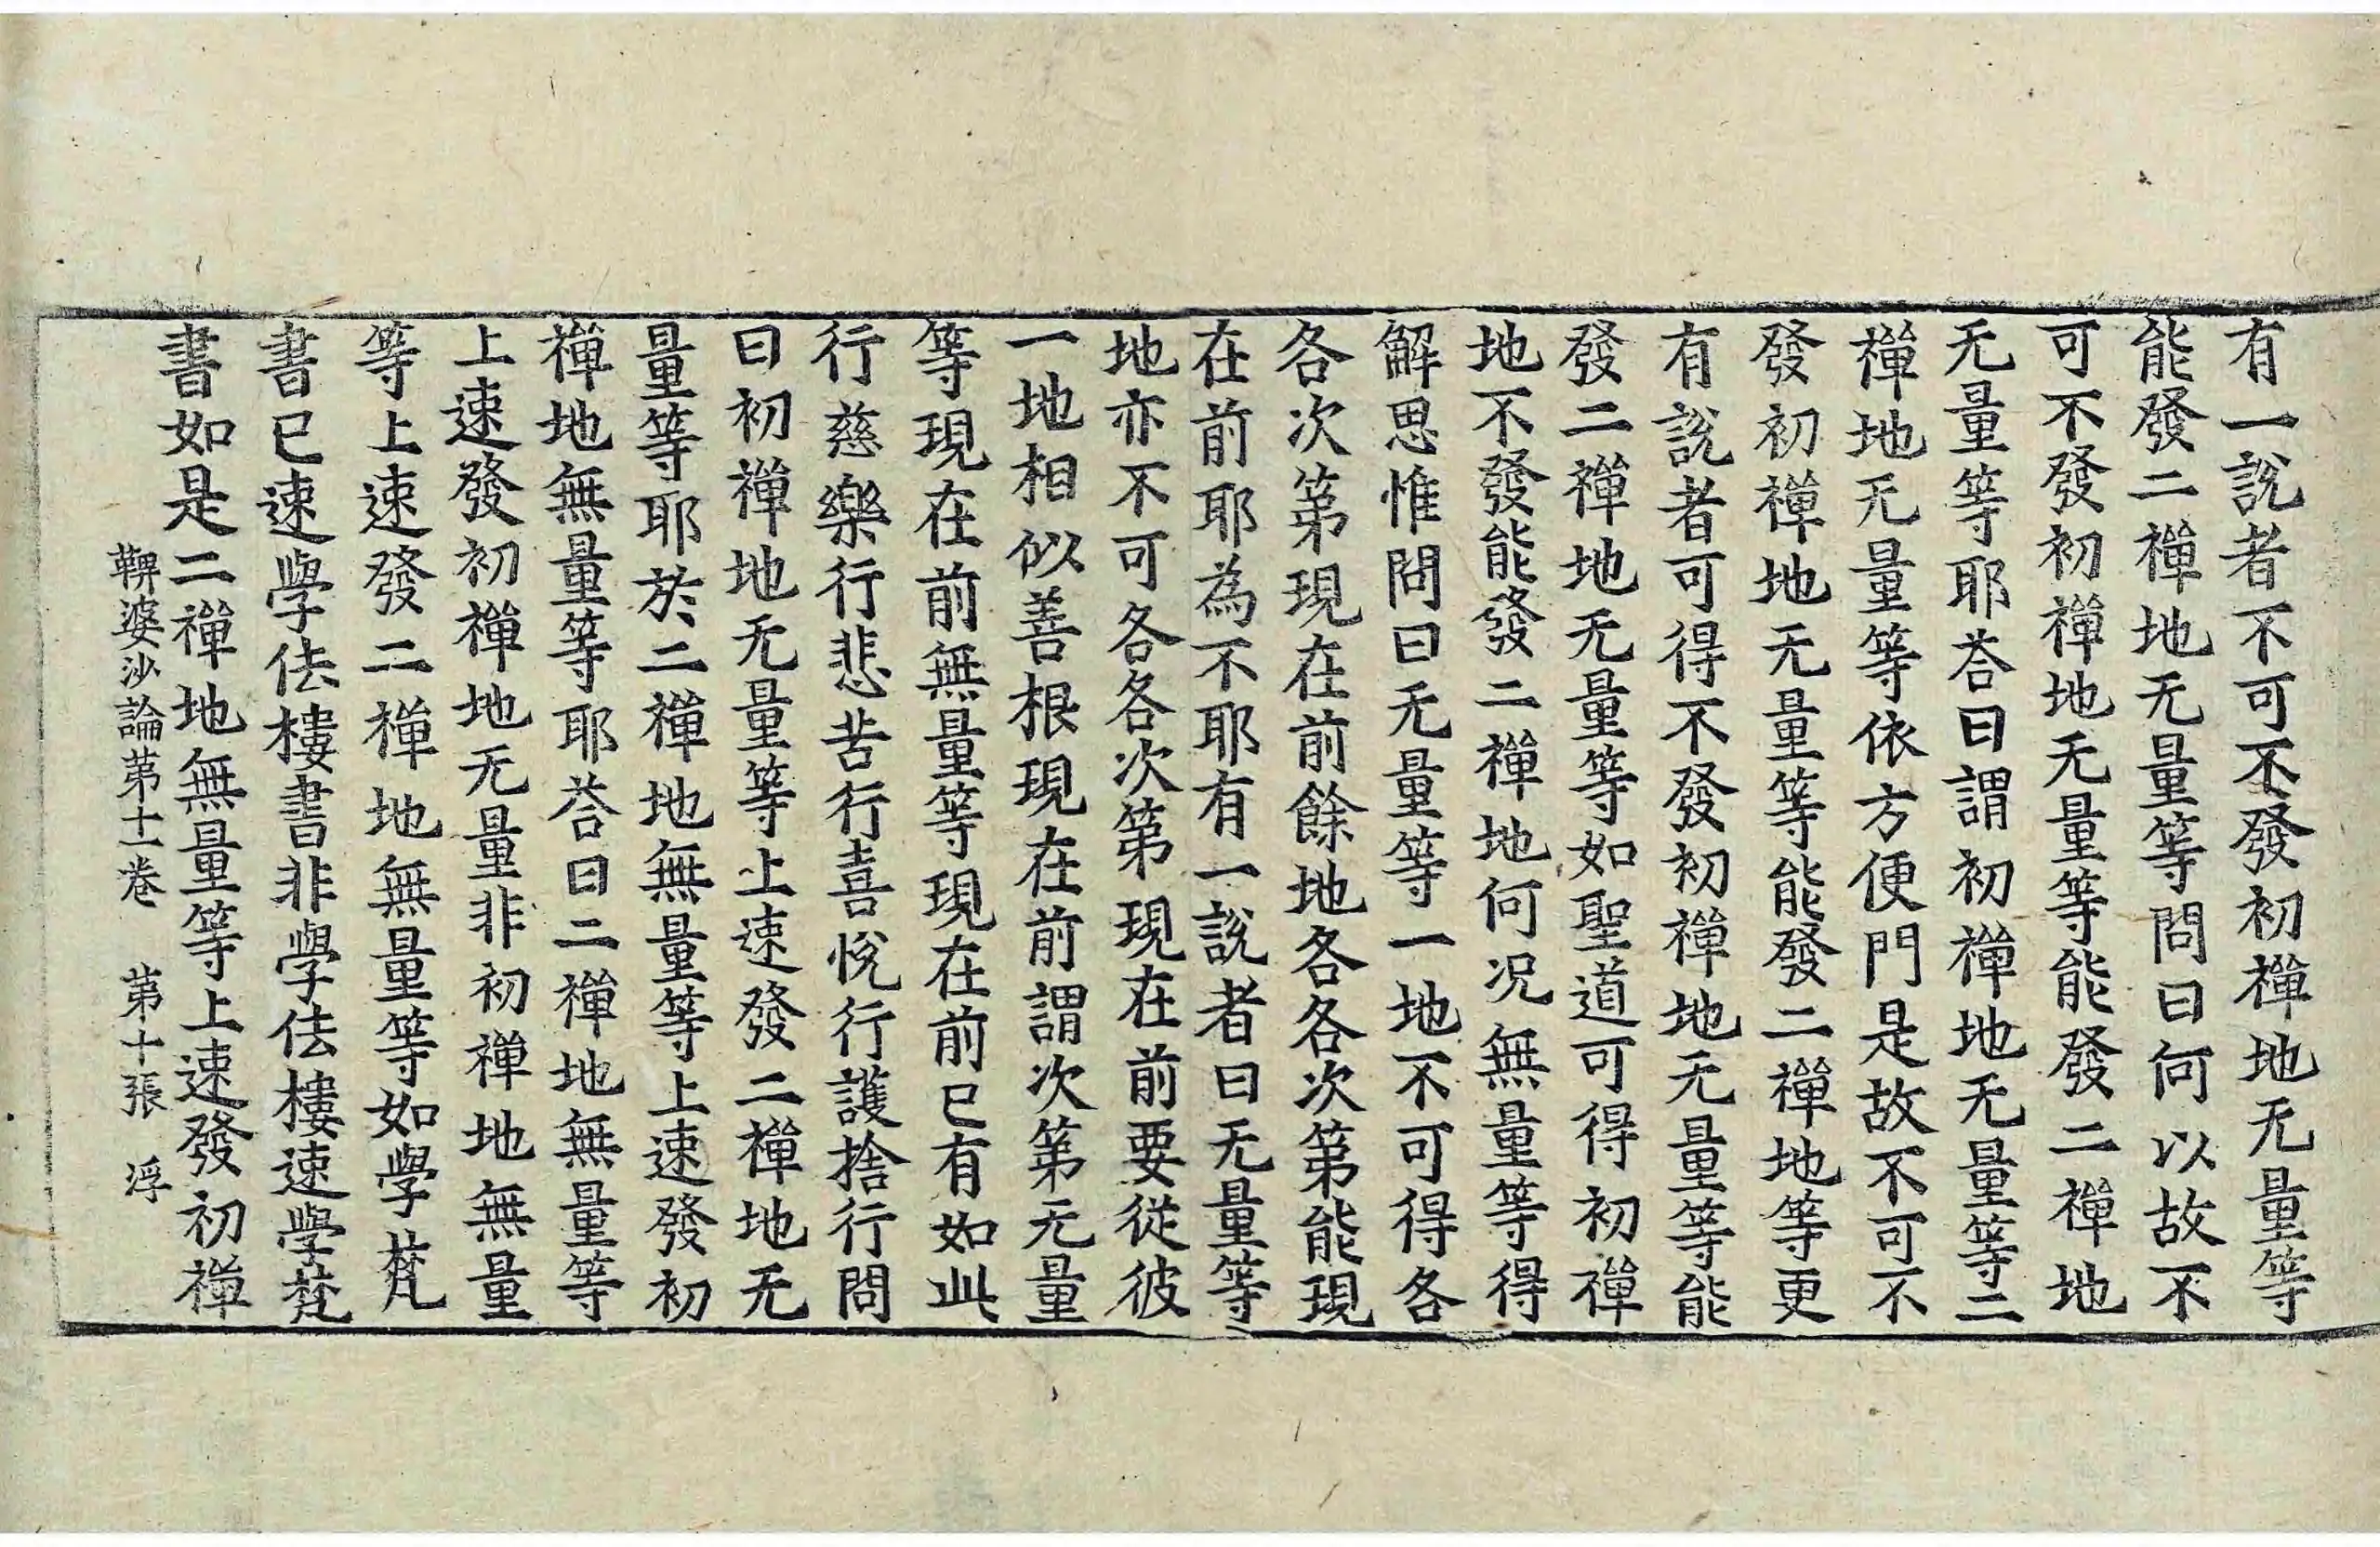 有一說者不可不發初禪地无量等
能發二禪地无量等問曰何以故不
可不發初禪地无量等能發二禪地
无量等耶荅曰謂初禪地无量等二
禪地无量等依方便門是故不可不
發初禪地无量等能發二禪地等更
有說者可得不發初禪地无量等能
發二禪地无量等如聖道可得初禪
地不發能發二禪地何况無量等得
解思惟問曰无量等一地不可得各
各次第現在前餘地各各次第能現
在前耶為不耶有一說者曰无量等
地亦不可各各次第現在前要從彼
一地相似善根現在前謂次第无量
等現在前無量等現在前已有如此
行慈樂行悲苦行喜悅行護捨行問
曰初禪地无量等上速發二禪地无
量等耶於二禪地無量等上速發初
禪地無量等耶荅曰二禪地無量等
上速發初禪地无量非初禪地無量
等上速發二禪地無量等如學梵
書已速學佉樓書非學佉樓速學梵
書如是二禪地無量等上速發初禪
鞞婆沙論第十一卷　第十張　浮